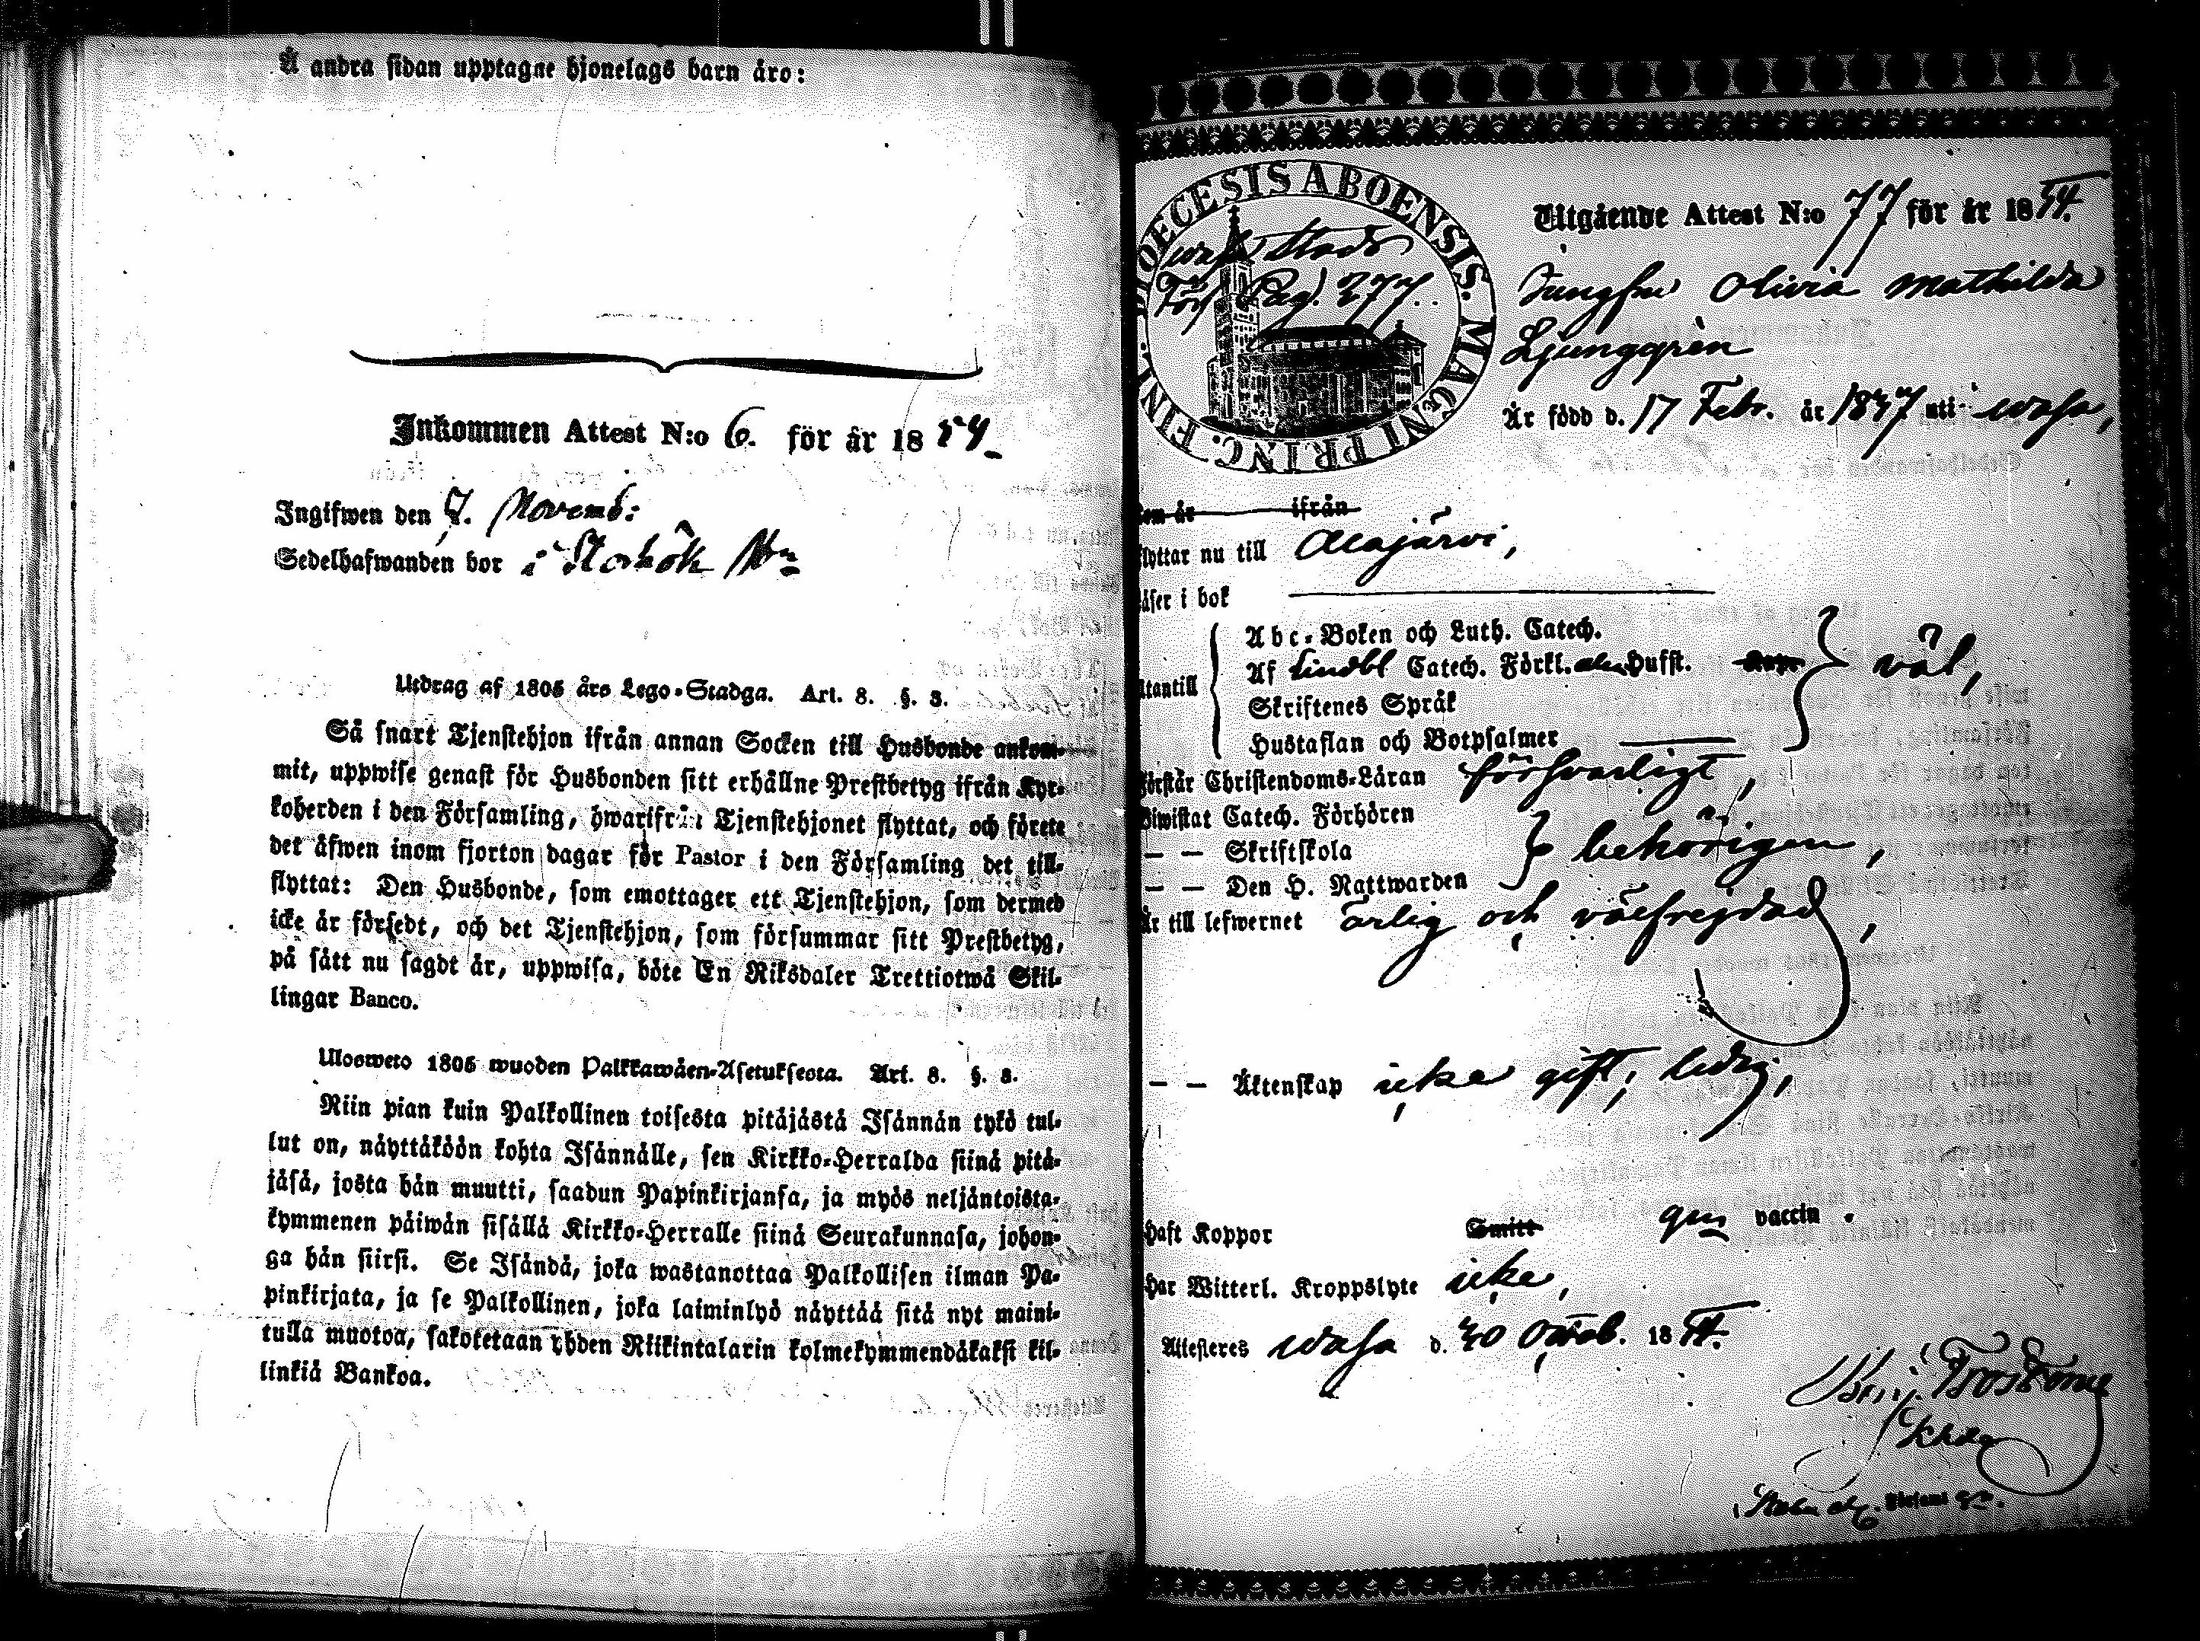 Å andra sidan upptagne hjonelags barn äro:
Inkommen Attest N:o 6. för år 1854
Ingifwen den 7. Novemb:
Sedelhafwanden bor i
Utdrag af 1805 års Lego-Stadga. Art. 8. §. 3.
Så snart Tjenstehjon ifrån annan Socken till Husbonde ankom-
mit, uppwise genast för Husbonden sitt erhållne Prestbetyg ifrån Kyr-
koherden i den Församling, hwarifrån Tjenstehjonet flyttat, och förete
det äfwen inom fjorton dagar för Pastor i den Församling det till-
flyttat: Den Husbonde, som emottager ett Tjenstehjon, som dermed
icke är försedt, och det Tjenstehjon, som försummar sitt Prestbetyg,
på sätt nu sagdt är, uppwisa, böte En Riksdaler Trettiotwå Skil-
lingar Banco.
Ulosweto 1805 wuoden Palkkawäen-Asetuksesta. Art. 8. §. 3.
Niin pian kuin Palkollinen toisesta pitäjästä Isännän tykö tul-
lut on, näyttäköön kohta Isännälle, sen Kirkko-Herralda siinä pitä-
jäsä, josta hän muutti, saadun Papinkirjansa, ja myös neljäntoista-
kymmenen päiwän sisällä Kirkko-Herralle siinä Seurakunnasa, johon-
ga hän siirsi. Se Isändä, joka wastanottaa Palkollisen ilman Pa-
pinkirjata, ja se Palkollinen, joka laiminlyö näyttää sitä nyt maini-
tulla muotoa, sakotetaan yhden Riikintalarin kolmekymmendäkaksi kil-
linkiä Bankoa.
DIOECESIS ABOENSIS. MAGNI PRINC. FINL.
Wasa Stads
Förs Pag. 277.
Utgående Attest N:o 77 för år 1854.
Jungfru Olivia Mathilda
Ljunggrèn
Är född d. 17 Febr. år 1837 uti Wasa,
kom år ifrån
flyttar nu till Alajärvi,
läser i bok
Abc-Boken och Luth. Catech.
Af Lindbl Catech. Förkl. Hufst.
utantill
väl,
Skriftenes Språk
Hustaflan och Botpsalmer
Förstår Christendoms-Läran försvarligt,
Biwistat Catech. Förhören
— — Skriftskola behörigen,
— — Den H. Nattwarden
Är till lefwernet ärlig och välfrejdad,
— — Äktenskap icke gift, ledig,
Haft Koppor Smitt gm vaccin.
Har Witterl. Kroppslyte icke,
Attesteras Wasa d. 30 Octob. 1854.